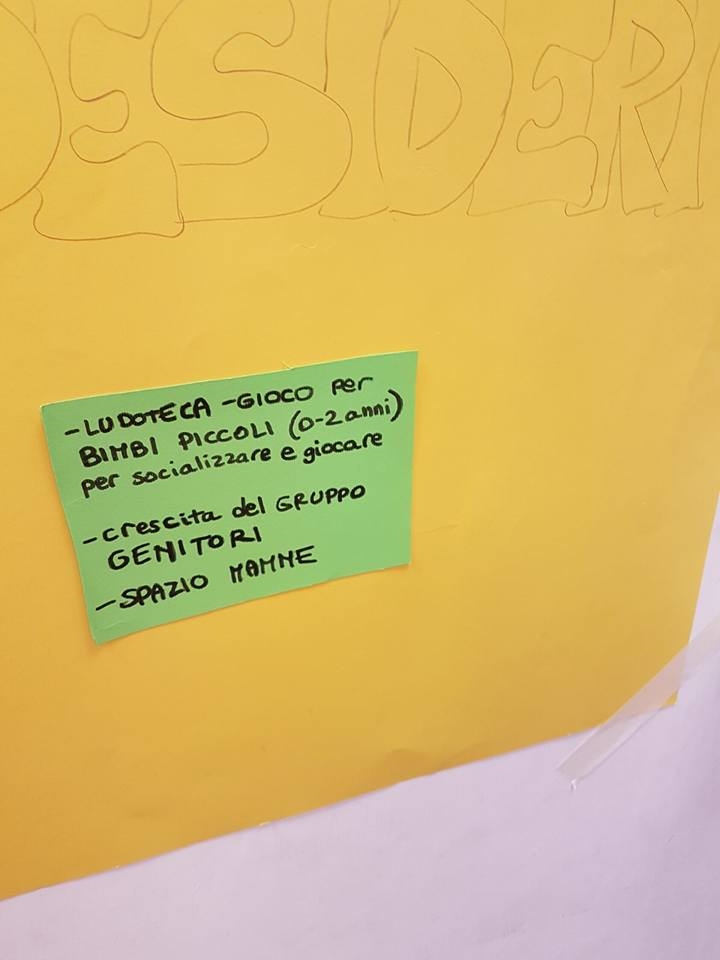 DESIDERI
-LUDOTECA -GIOCO per
BIMBI PICCOLI (0-2 anni)
per socializzare e giocare
-crescita del GRUPPO
GENITORI
-SPAZIO MAMME